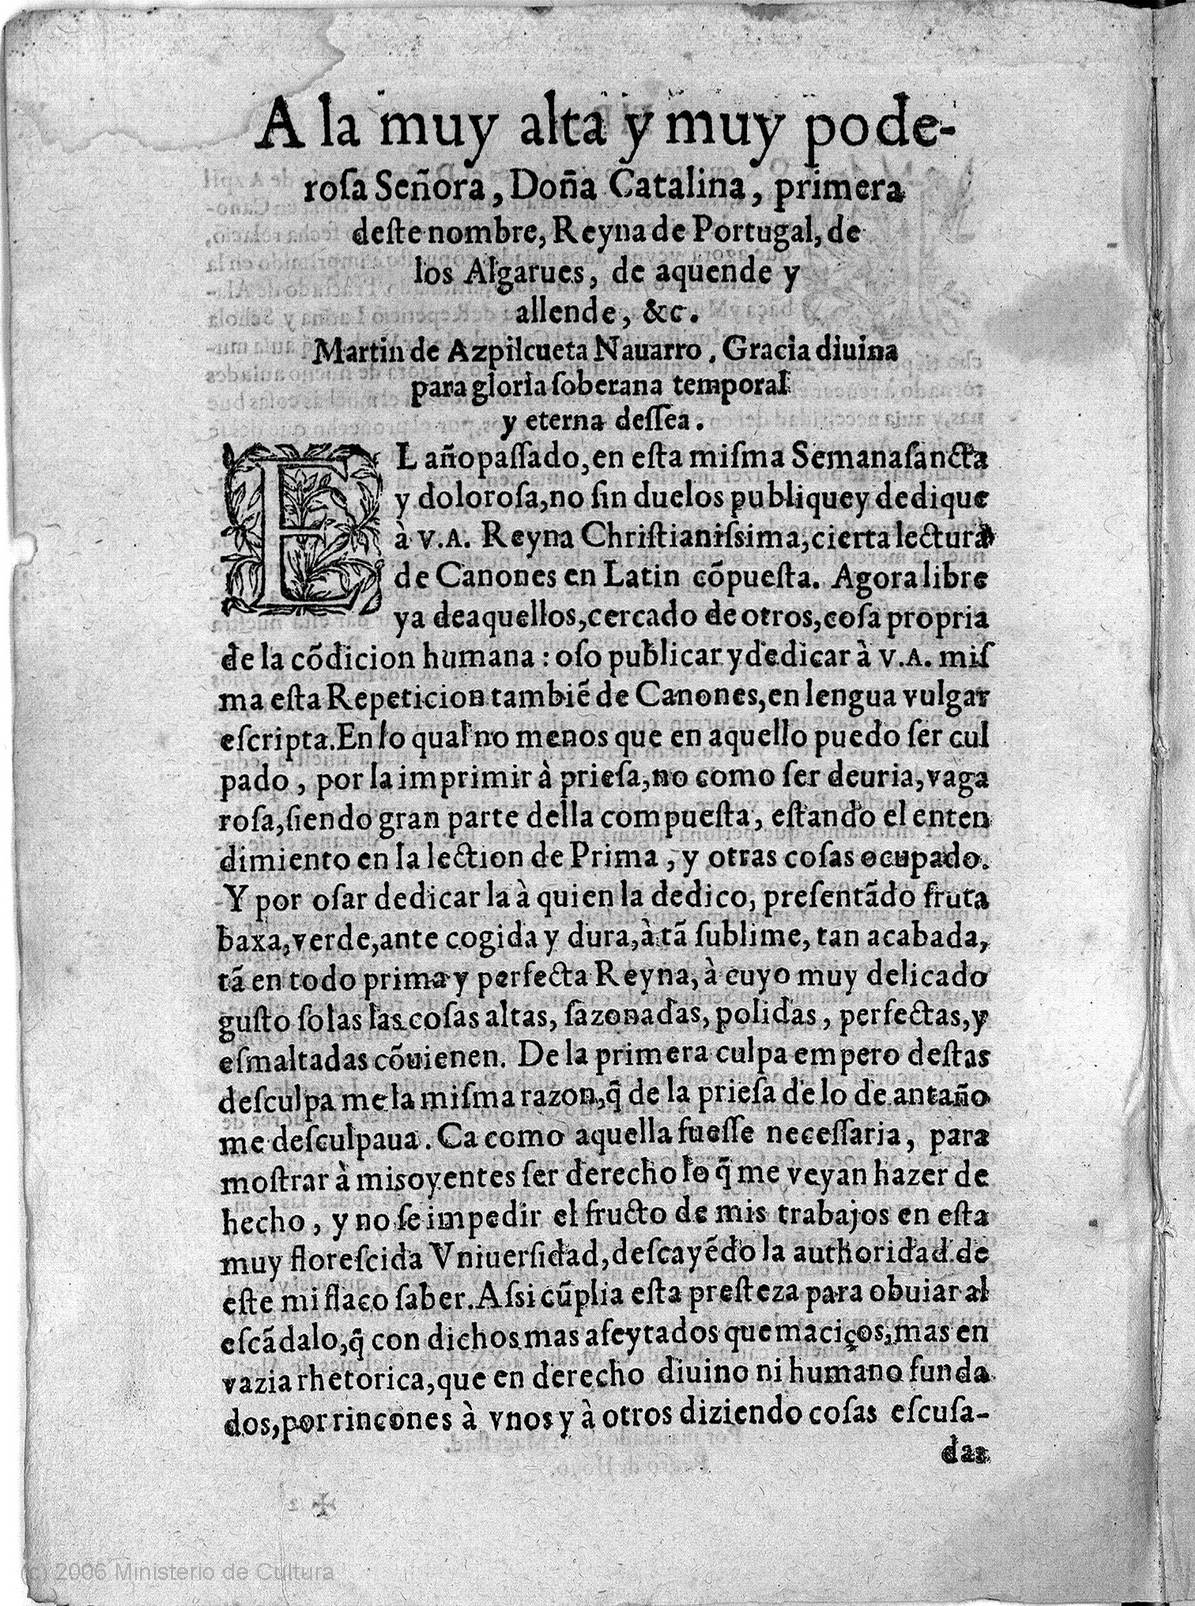 A la muy alta y muy pode-
rosa Señora, Doña Catalina, primera
deste nombre, Reyna de Portugal, de
los Algarues, de aquende y
allende, &c.
Martin de Azpilcueta Nauarro, Gracia diuina
para gloria soberana temporal
y eterna dessea.
EL año passado, en esta misma Semana sancta
y dolorosa, no sin duelos publique y dedique
à V.A. Reyna Christianissima, cierta lectura
de Canones en Latin cõpuesta. Agora libre
ya de aquellos, cercado de otros, cosa propria
de la cõdicion humana : oso publicar y dedicar à V.A. mis
ma esta Repeticion tambiẽ de Canones, en lengua vulgar
escripta. En lo qual no menos que en aquello puedo ser cul
pado, por la imprimir à priesa, no como ser deuria, vaga
rosa, siendo gran parte della compuesta, estando el enten
dimiento en la lection de Prima, y otras cosas ocupado.
Y por osar dedicar la à quien la dedico, presentãdo fruta
baxa, verde, ante cogida y dura, à tã sublime, tan acabada,
tã en todo prima y perfecta Reyna, à cuyo muy delicado
gusto solas las cosas altas, sazonadas, polidas, perfectas, y
esmaltadas cõuienen. De la primera culpa empero destas
desculpa me la misma razon, q̃ de la priesa de lo de antaño
me desculpaua. Ca como aquella fuesse necessaria, para
mostrar à mis oyentes ser derecho lo q̃ me veyan hazer de
hecho, y no se impedir el fructo de mis trabajos en esta
muy florescida Vniuersidad, descayẽdo la authoridad de
este mi flaco saber. Assi cũplia esta presteza para obuiar al
escãdalo, q̃ con dichos mas afeytados que maciços, mas en
vazia rhetorica, que en derecho diuino ni humano funda
dos, por rincones à vnos y à otros diziendo cosas escusa-
das
(c) 2006 Ministerio de Cultura